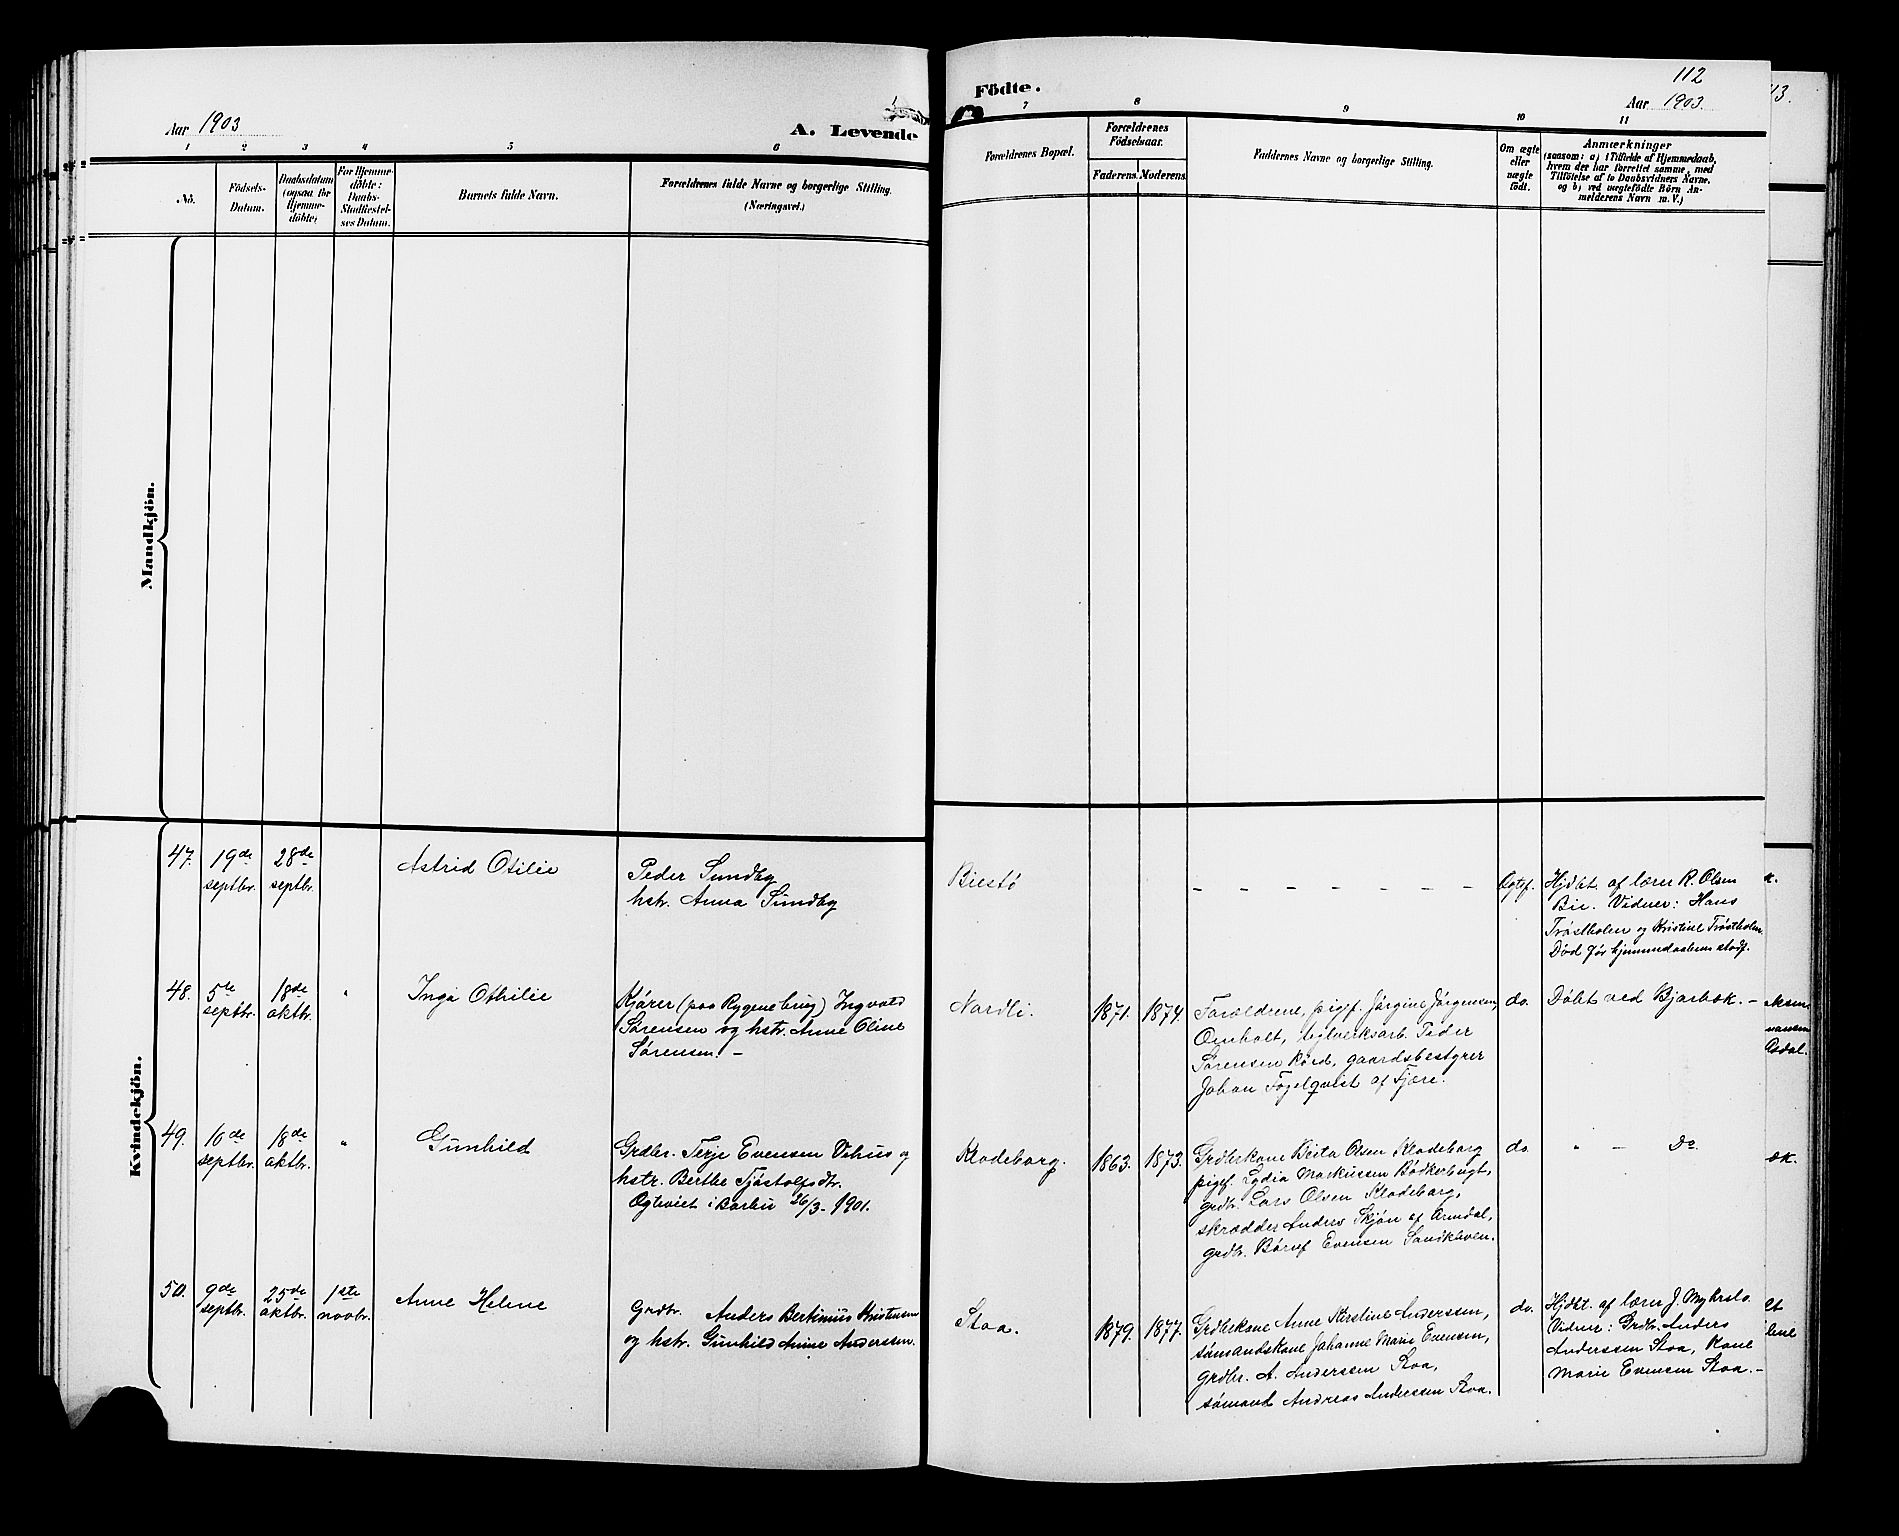 Aar 1903
A. Levende
Födte.
112
Aar 1903.
13.
1 2 3 4 5 6
7 8 9 10 11
No.
Födsels-
Datum.
Daabsdatum
(ogsaa for
Hjemme-
döbte)
For Hjemme-
döbte:
Daabs-
Stadfæstel-
ses Datum.
Barnets fulde Navn.
Forældrenes fulde Navne og borgerlige Stilling.
(Næringsvei.)
Forældrenes Bopæl.
Forældrenes
Födselsaar.
Faderens. Moderens.
Faddernes Navne og borgerlige Stilling.
Om ægte
eller
uægte
födt.
Anmærkninger
(saasom: a) i Tilfælde af Hjemmedaab,
hvem der har forrettet samme, med
Tilföielse af to Daabsvidners Navne,
og b) ved uægtefödte Börn An-
melderens Navn m. V.)
Mandkjön.
Kvindekjön.
47.
19de
septbr.
28de
septbr.
Astrid Otilie
Peder Sundby
hstr. Anna Sundby
Biestø
- - - - - - - -
Ægtef.
Hjdbt. af lærer R. Olsen
Bie. Vidner: Hans
Trøstholen og Kristine Trøstholen.
Død før hjemmedaabens stadf.
48.
5te
septbr.
18de
oktbr.
"
Inga Othilie
Kjører (paa Rygene brug) Ingvald
Sørensen og hstr. Anne Oline
Sørensen. -
Nardli.
1871. 1874.
Forældrene, pigef. Jørgine Jørgensen,
Omholt, teglverksarb. Peder
Sørensen Roed, gaardsbestyrer
Johan Fogelqvist af Fjære.
do.
Døbt ved Bjorbæk. -
49.
10de
septbr.
18de
oktbr.
"
Gunhild
Grdbr. Terje Evensen Vehus og
hstr. Berthe Tjøstolfsdtr.
Ægteviet i Barbu 26/3-1901.
Klodeborg.
1863. 1873.
Grdbrkone Berta Olsen Klodeborg
pigef. Lydia Markussen Bødkerbugt,
grdbr. Lars Olsen Klodeborg,
skrædder Anders Skjøn af Arendal,
grdbr. Børuf Evensen Sandkleven.
do.
" - Do.
50.
9de
septbr.
25de
oktbr.
1ste
novbr.
Anne Helene
Grdbr. Anders Bertinius Kristensen
og hstr. Gunhild Anne Anderssen.
Stoa.
1879. 1877.
Grdbrkone Anne Kerstine Anderssen,
sømandskone Johanne Marie Evensen,
grdbr. A. Anderssen Stoa,
sømand Andreas Anderssen Stoa.
do.
Hjdbt. af lærer J. Myhrslo.
Vidner: Grdbr. Anders
Anderssen Stoa, Kone
Marie Evensen Stoa. -